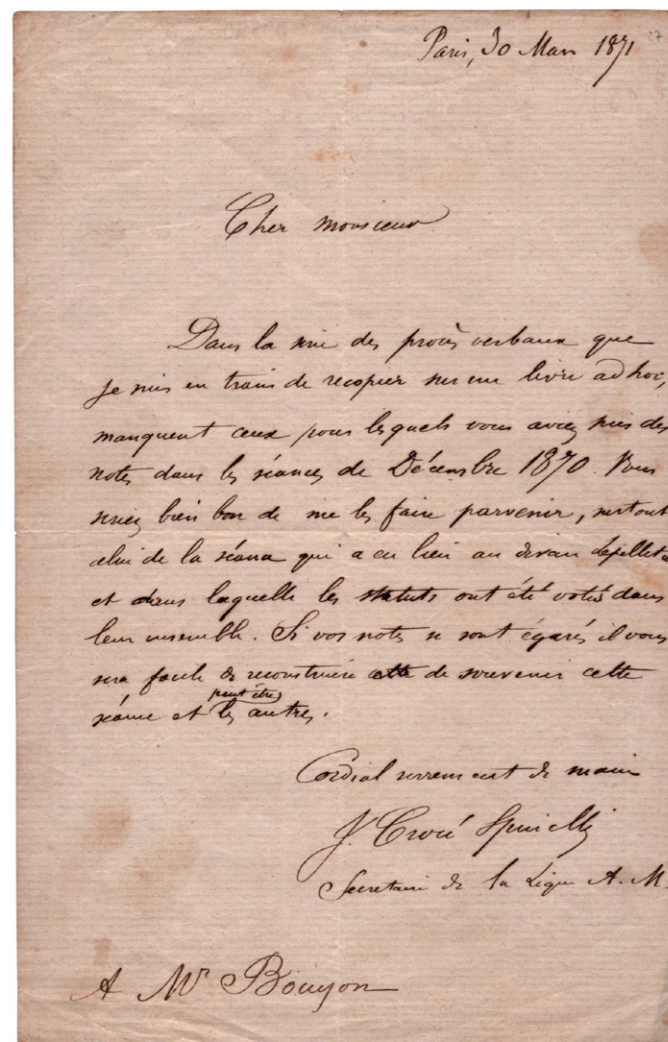 27
Paris, 30 Mars 1871
Cher monsieur
Dans la série des procès verbaux que
je suis en train de recopier sur un livre ad hoc,
manquent ceux pour lesquels vous aviez pris des
notes dans les séances de Décembre 1870. Vous
seriez bien bon de me les faire parvenir, surtout
celui de la séance qui a eu lieu au divan Lepelletier
et dans laquelle les statuts ont été votés dans
leur ensemble. Si vos notes se sont égarés il vous
sera facile de reconstruire cette de souvenir cette
peut être
séance et les autres.
Cordial serrement de main
J. Crocé Spinelli
Secretaire de la Ligue A. M.
A Mr Bouyon